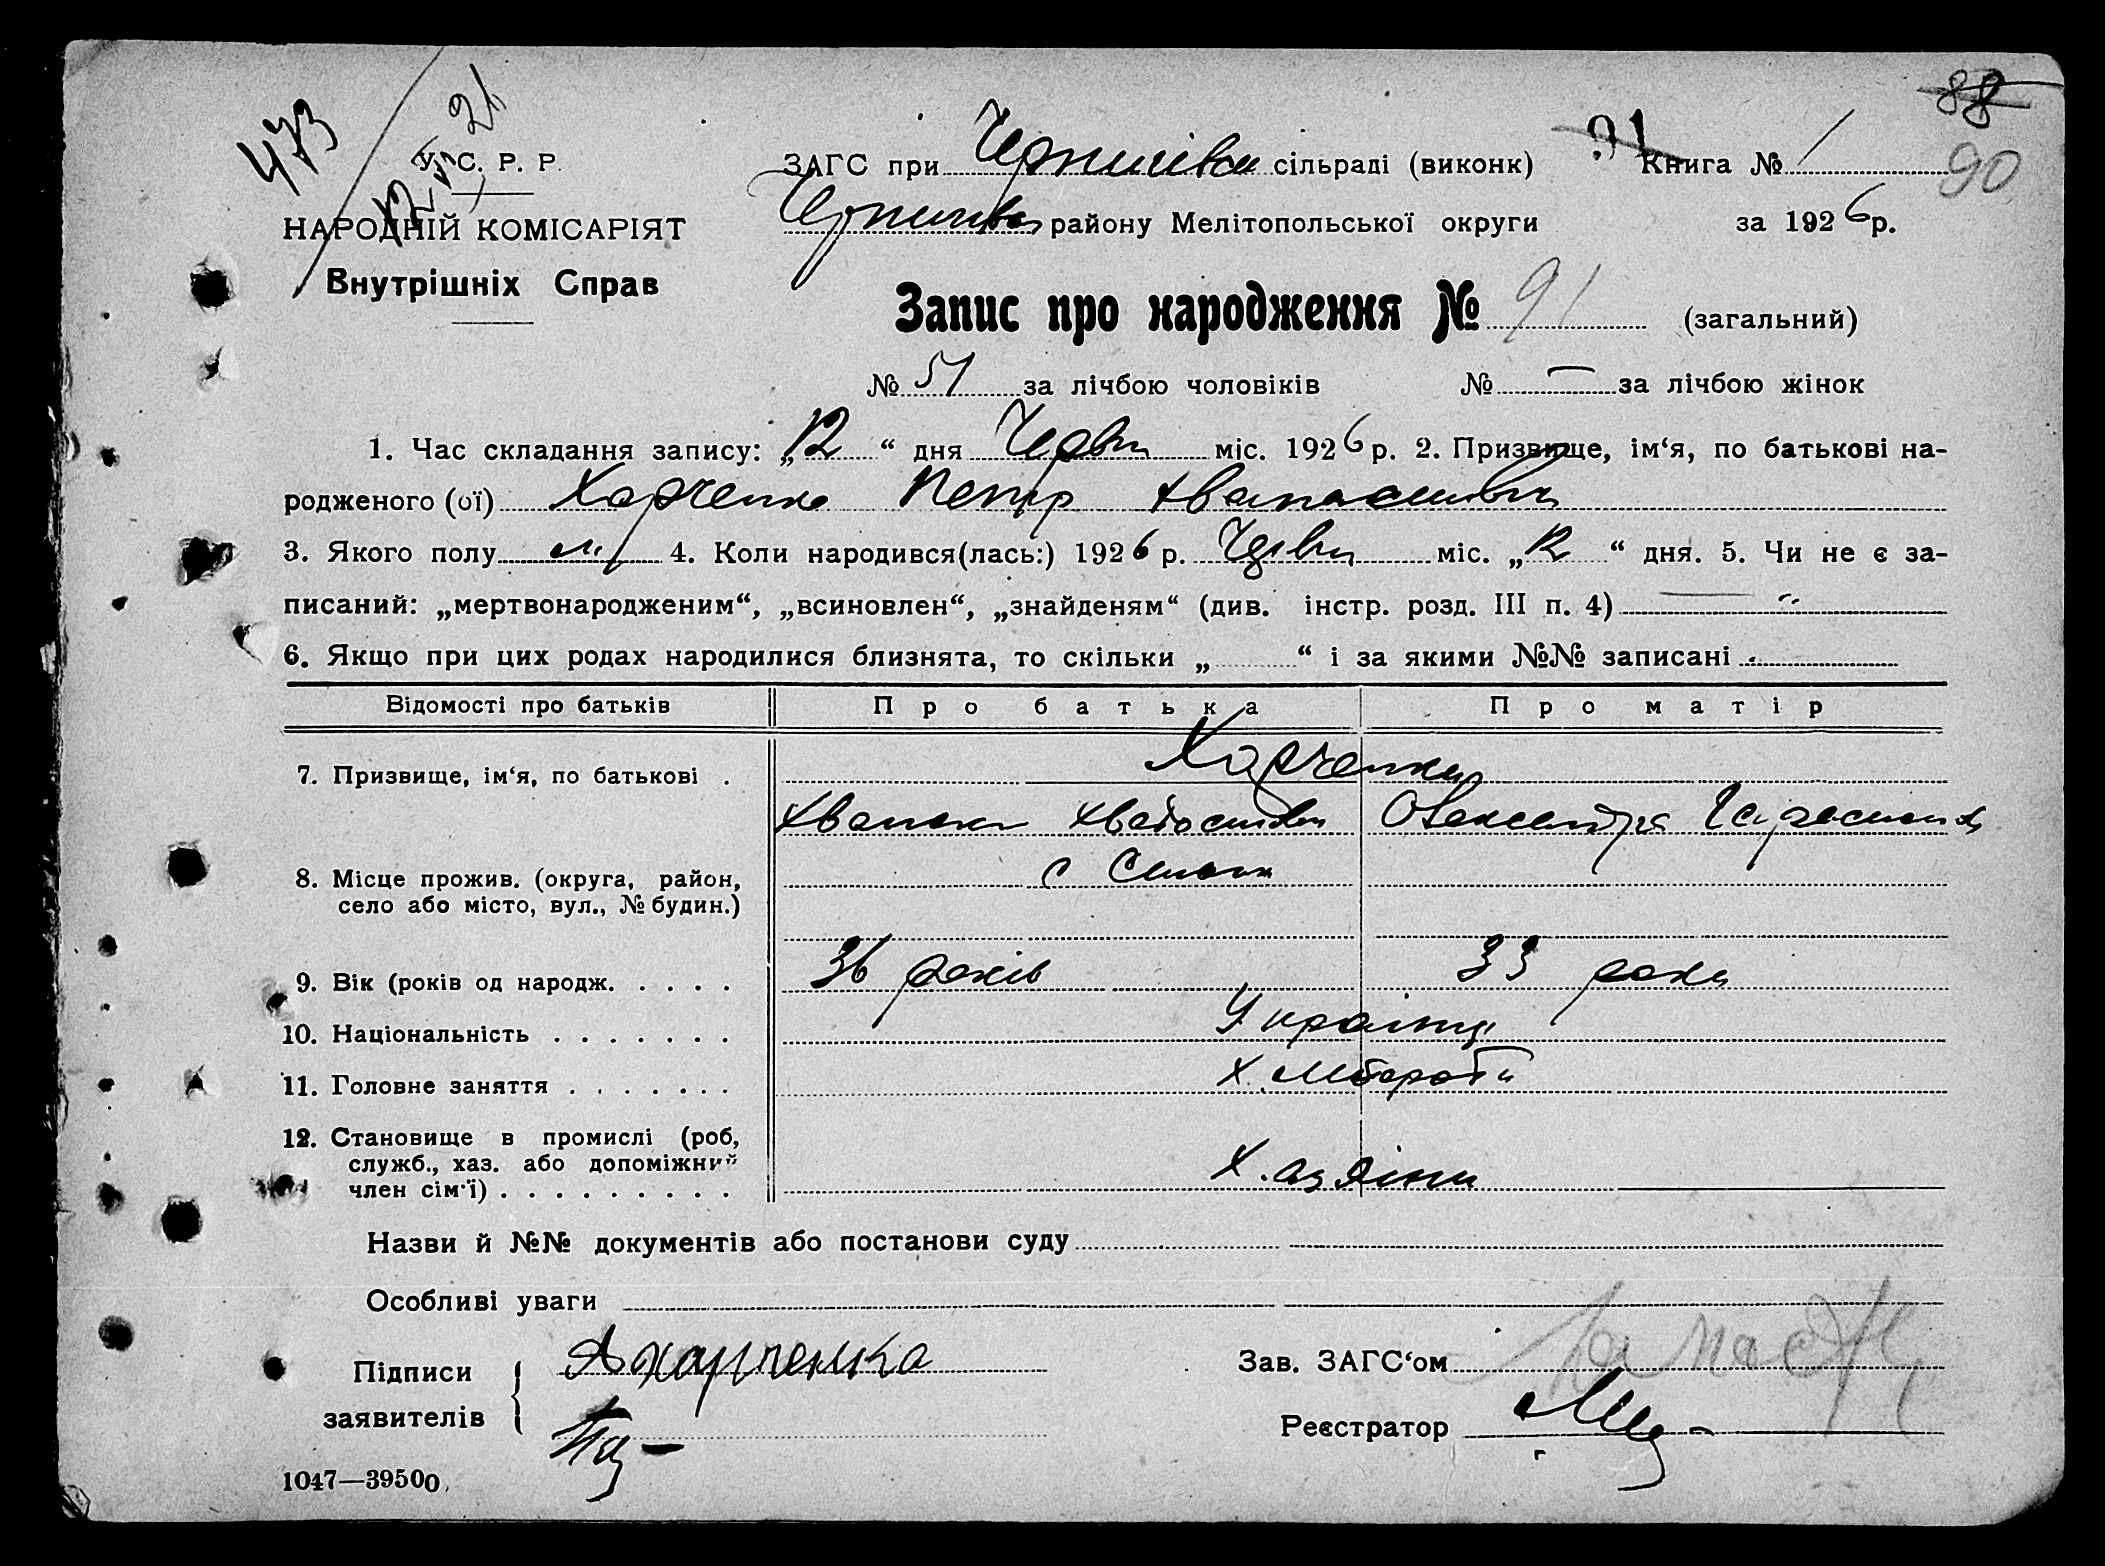 473
21
88
90
91
У. С. Р. Р.
ЗАГС при Чернигівки сільраді (виконк)
Книга № 1
НАРОДНІЙ КОМІСАРІЯТ
району Мелітопольської округи
за 1926 р.
Внутрішніх Справ
Запис про народження № 91 (загальний)
№ 51 за лічбою чоловіків
№ — за лічбою жінок
1. Час складання запису: „12“ дня Червн міс. 1926 р. 2. Призвище, ім‘я, по батькові на-
родженого (ої) Харченко Петр
3. Якого полу м. 4. Коли народився(лась:) 1926 р. Червн міс. „12“ дня. 5. Чи не є за-
писаний: „мертвонародженим“, „всиновлен“, „знайденям“ (див. інстр. розд. III п. 4) — "
6. Якщо при цих родах народилися близнята, то скільки „ “ і за якими №№ записані
Відомості про батьків
Про батька
Про матір
7. Призвище, ім‘я, по батькові .
Харченки
Олександра
8. Місце прожив. (округа, район,
село або місто, вул., № будин.)
9. Вік (років од народж. . . . .
36 років
33 роки
10. Національність . . . . . . .
Українці
11. Головне заняття . . . . . . .
Х.мібороби
12. Становище в промислі (роб,
служб., хаз. або допоміжний
член сім‘ї) . . . . . . . . .
Х.азяіни
Назви й №№ документів або постанови суду
Особливі уваги
Підписи
заявителів
А Харченко
Зав. ЗАГС‘ом
Реєстратор
1047—39500.